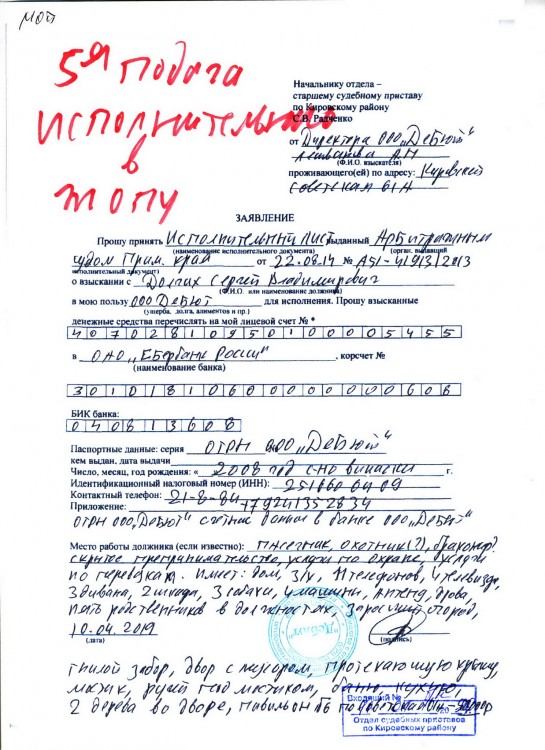 МОП
5я подача
исполнительного
в
жопу
Начальнику отдела –
старшему судебному приставу
по Кировскому району
С.В. Радченко
от Директора ООО „Дебют“
А.Н
(Ф.И.О. взыскателя)
проживающего(ей) по адресу: Кировский
Советская 61А
ЗАЯВЛЕНИЕ
Прошу принять Исполнительный лист выданный Арбитражным
(наименование исполнительного документа) (орган, выдавший
судом Прим. края от 22.08.14 № А51-41913/2013
исполнительный документ)
о взыскании с Долгих Сергей Владимирович
(Ф.И.О. или наименование должника)
в мою пользу ООО Дебют для исполнения. Прошу взысканные
(ущерба, долга, алиментов и пр.)
денежные средства перечислять на мой лицевой счет № *
40702810950100005455
в ОАО „Сбербанк России“, корсчет №
(наименование банка)
30101810600000000608
БИК банка:
040813608
Паспортные данные: серия ОГРН ООО „Дебют“
кем выдан, дата выдачи
Число, месяц, год рождения: « 2008 год с-но выписки г.
Идентификационный налоговый номер (ИНН): 2516606409
Контактный телефон: 21-8-84 +79241352834
Приложение:
ОГРН ООО „Дебют“ счётчик данные в банке ООО „Дебют“
Место работы должника (если известно): пасечник, охотник(?), браконьер
скрытое предпринимательство, услуги по охране, услуги
по перевозкам. Имеет: дом, з/у, 11 телефонов, 4 телевизора
3 дивана, 2 шкафа, 3 собаки, 4 машины, прицеп, дрова,
пять родственников в должностях, заросший огород,
10.04.2019
(дата) (подпись)
"Дебют"
гнилой забор, двор с мусором, протекающую крышу,
мостик, ручей под мостиком, баню, кухню,
2 дерева во дворе, павильон по Советской
Входящий №
20
Отдел судебных приставов
по Кировскому району